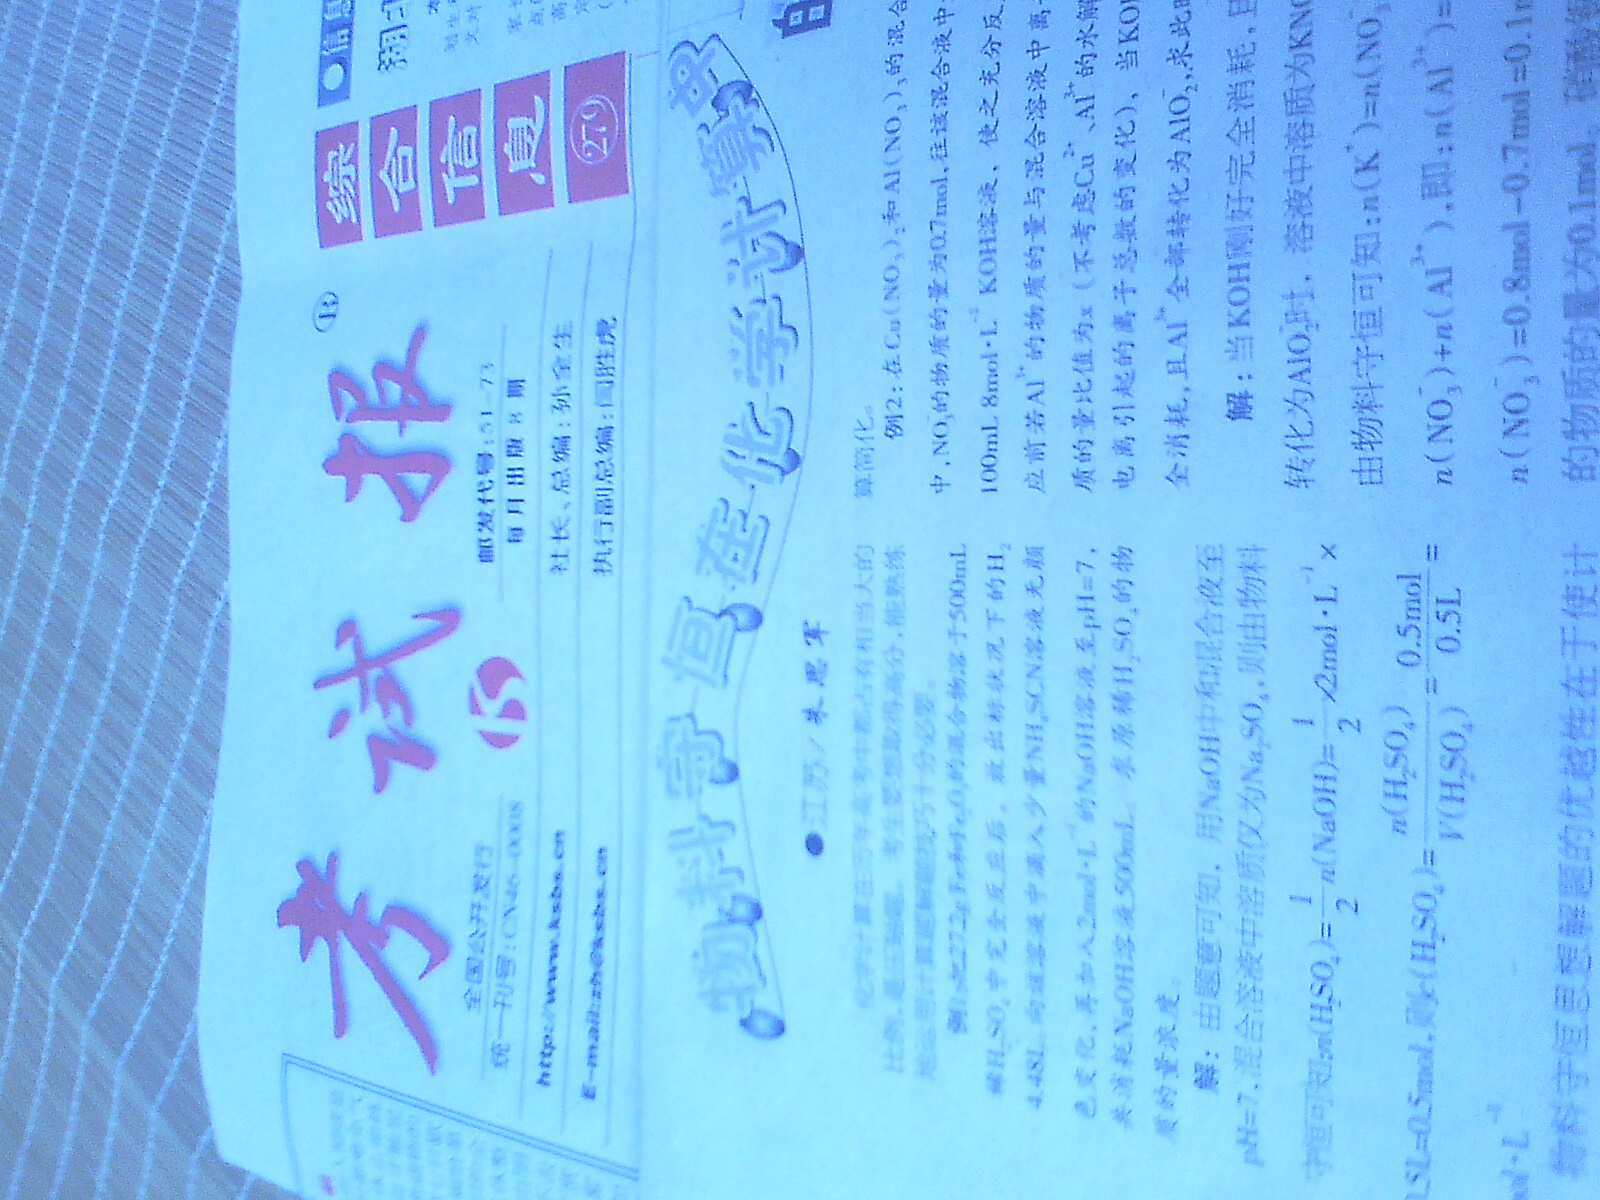 考试报
综合信息
279
全国公开发行
统一刊号:CN46-0008
邮发代号:51-73
每月出版8期
http://www.ksbs.cn
社长、总编:孙全生
执行副总编:闫胜虎
物料守恒在化学计算中
●江苏/朱思军
化学计算在历年高考中都占有相当大的
比例,是压轴题。考生要想取得高分,能熟练
地运用计算题解题技巧十分必要。
例1:把27.2g Fe和Fe₂O₃的混合物溶于500mL
稀H₂SO₄中完全反应后,放出标状况下的H₂
4.48L,向该溶液中滴入少量NH₄SCN溶液无颜
色变化,再加入2mol·L⁻¹的NaOH溶液至pH=7,
共消耗NaOH溶液500mL。求原稀H₂SO₄的物
质的量浓度。
解:由题意可知,用NaOH中和混合液至
pH=7,混合溶液中溶质仅为Na₂SO₄,则由物料
守恒可知:n(H₂SO₄)=1/2 n(NaOH)=1/2×2mol·L⁻¹×
.5L=0.5mol,则c(H₂SO₄)=n(H₂SO₄)/V(H₂SO₄)=0.5mol/0.5L=
ol·L⁻¹
物料守恒思想解题的优越性在于使计
算简化。
例2:在Cu(NO₃)₂和Al(NO₃)₃的混合
中,NO₃的物质的量为0.7mol,往该混合液中
100mL 8mol·L⁻¹ KOH溶液,使之充分反
应前若Al³⁺的物质的量与混合溶液中离
质的量比值为x(不考虑Cu²⁺、Al³⁺的水解
电离引起的离子总数的变化),当KOH
全消耗,且Al³⁺全部转化为AlO₂⁻,求此时
解:当KOH刚好完全消耗,且
转化为AlO₂⁻时,溶液中溶质为KNO
由物料守恒可知:n(K⁺)=n(NO₃
n(NO₃⁻)+n(Al³⁺),即:n(Al³⁺)=
n(NO₃⁻)=0.8mol-0.7mol=0.1m
的物质的量为0.1mol。